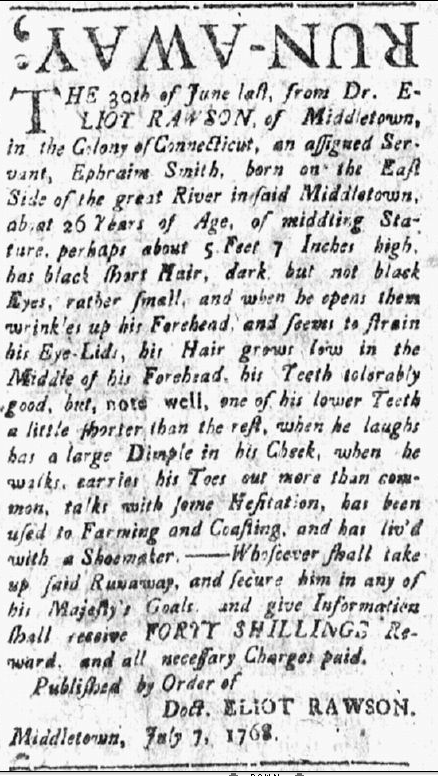 RUN-AWAY,
THE 30th of June laſt, from Dr. E-
LIOT RAWSON, of Middletown,
in the Colony of Connecticut, an aſſigned Ser-
vant, Ephraim Smith, born on the Eaſt
Side of the great River in ſaid Middletown,
about 26 Years of Age, of middling Sta-
ture, perhaps about 5 Feet 7 Inches high,
has black ſhort Hair, dark but not black
Eyes, rather ſmall, and when he opens them
wrinkles up his Forehead, and ſeems to ſtrain
his Eye-Lids, his Hair grows low in the
Middle of his Forehead, his Teeth tolerably
good, but, note well, one of his lower Teeth
a little ſhorter than the reſt, when he laughs
has a large Dimple in his Cheek, when he
walks, carries his Toes out more than com-
mon, talks with ſome Heſitation, has been
uſed to Farming and Coaſting, and has liv'd
with a Shoemaker.——Whoſoever ſhall take
up ſaid Runaway, and ſecure him in any of
his Majeſty's Goals, and give Information
ſhall receive FORTY SHILLINGS Re-
ward, and all neceſſary Charges paid.
Publiſhed by Order of
Doct. ELIOT RAWSON.
Middletown, July 7, 1768.